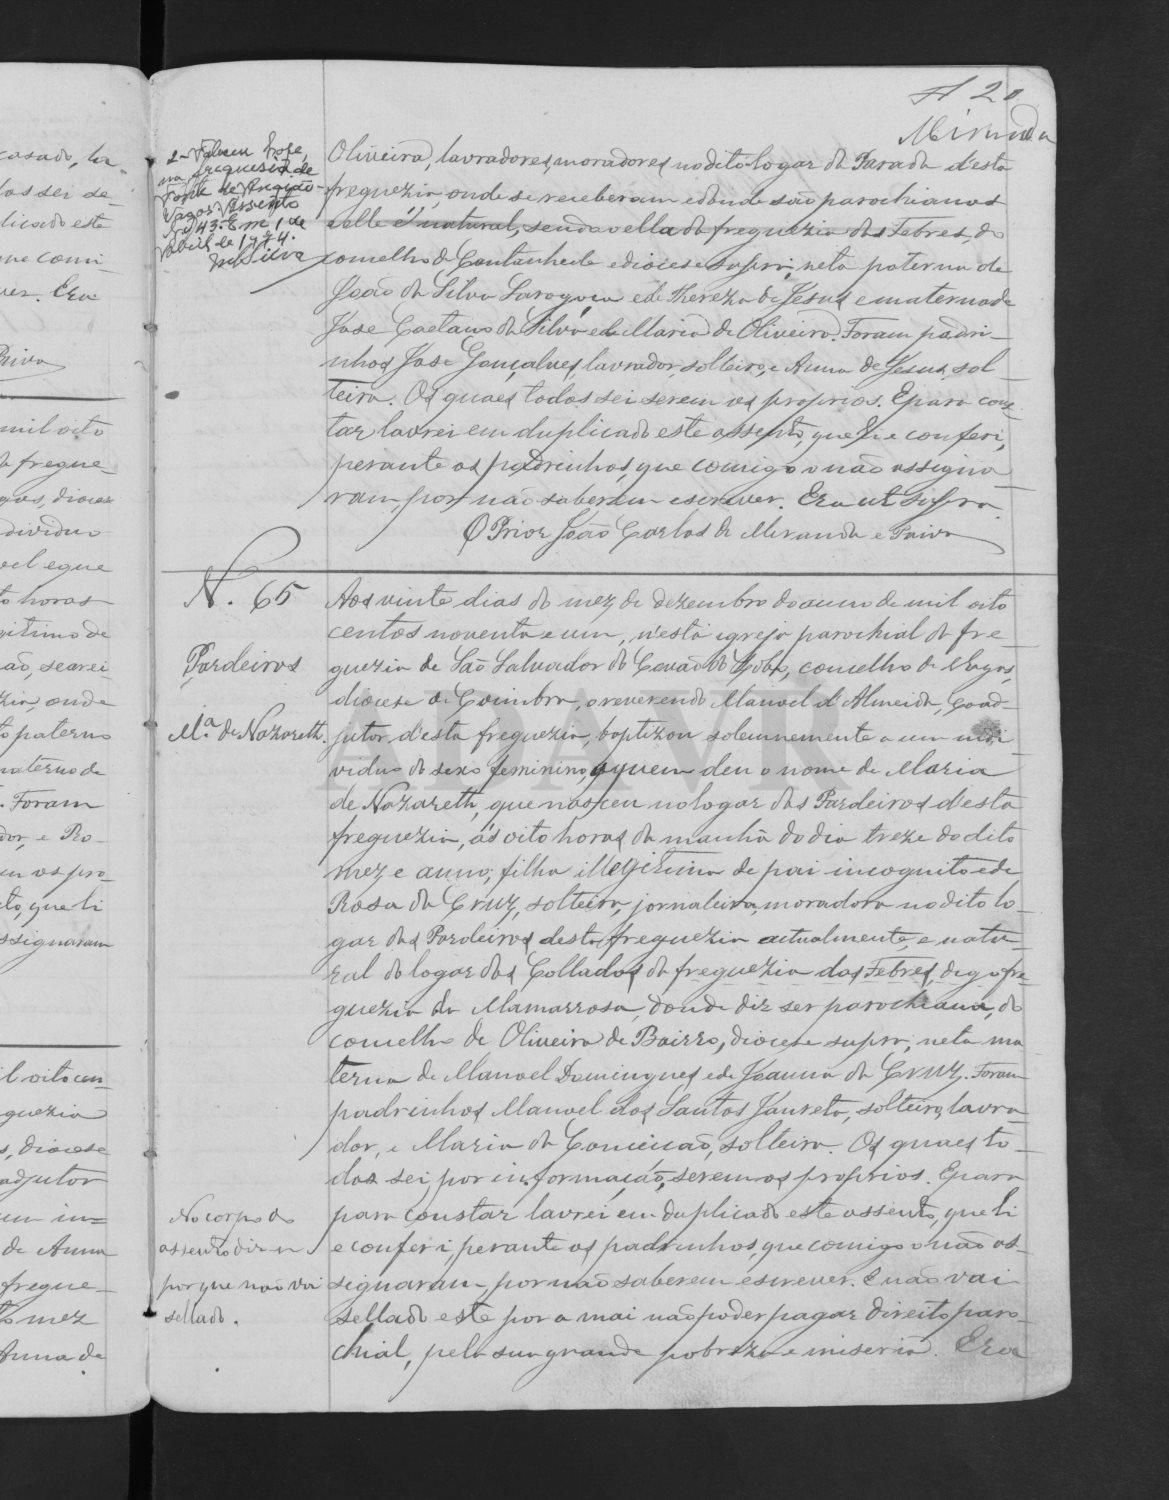 20
Miranda
2 - Faleceu hoje,
na freguesia de
Fonte de Angeão -
Vagos Assento
Nº 43. Em 1 de
Abril de 1974.
MSilva
Oliveira, lavradores, moradores no dito logar da Parada d'esta
freguezia, onde se receberam e donde são parochianos
e elle é natural, sendo ella da freguezia das Febres, do
comcelho de Cantanhede e diocese supra; neta paterna de
João da Silva e de Thereza de Jesus e materna de
Jose Caetano da Silva e de Maria de Oliveira. Foram padri-
nhos Jose Gonçalves, lavrador, solteiro, e Anna de Jesus, sol-
teira. Os quaes todos sei serem os proprios. E para cons-
tar lavrei em duplicado este assento, que li e conferi,
perante os padrinhos, que comigo o não assigna-
ram, por não saberem escrever. Era ut supra.
O Prior João Carlos de Miranda e Paiva
N. 65
Pardeiros
M.ª de Nazareth.
Aos vinte dias do mez de dezembro do anno de mil oito
centos noventa e um, n'esta igreja parochial da fre
guezia de São Salvador do Covão do Lobo, concelho de Vagos,
diocese de Coimbra, o reverendo Manoel d'Almeida, Coad-
jutor d'esta freguezia, baptizou solemnemente a um indi
viduo do sexo feminino, a quem deu o nome de Maria
de Nazareth, que nasceu no logar dos Pardeiros d'esta
freguezia, ás oito horas da manhã do dia treze do dito
mez e anno; filha illegitima de pai incognito e de
Rosa da Cruz, solteira, jornaleira, moradora no dito lo-
gar dos Pardeiros desta freguezia actualmente, e natu-
ral do logar dos Collados da freguezia das Febres, digo fre-
guezia da Mamarrosa, donde diz ser parochiana, do
comcelho de Oliveira de Bairro, diocese supra; neta ma
terna de Manoel Domingues e de Joanna da Cruz. Foram
padrinhos Manoel dos Santos solteiro, lavra-
dor, e Maria da Conceicão, solteira. Os quaes to-
dos sei, por informação, serem os proprios. E para
para constar lavrei em duplicado este assento, que li
e conferi, perante os padrinhos, que comigo o não as-
signaram, por não saberem escrever. E não vai
sellado este por a mai não poder pagar direito paro-
chial, pela sua grande pobreza e miseria. Era
No corpo do
assento diz
porque não vai
sellado.
casado, la
los sei se-
licado este
que comi-
ver. Era
Paiva
mil oito
da fregue-
gos, dioces
dividuo
el e que
to horas
gitimo de
zia, onde
to paterno
materno de
. Foram
dor, e Ro-
m os pro-
to, que li
ssignaram
il oito cen-
guezia
s, diocese
adjutor
um in=
de Anna
fregue-
to mez
Anna de
ADAVR